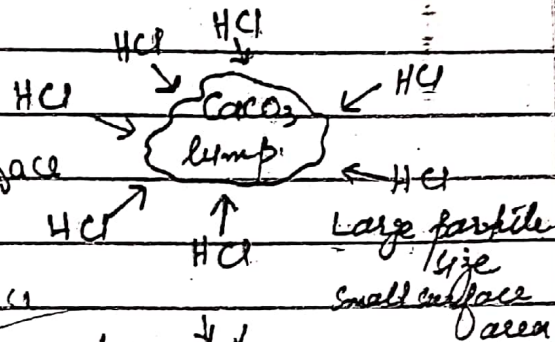 HCl
HCl
HCl
HCl
CaCO3
lump.
face
HCl
HCl
HCl
Large particle
size
small surface
area